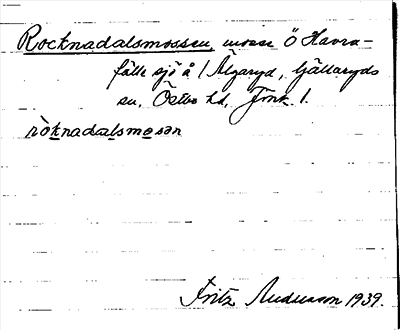 Rocknadalsmossen, mosse Ö Havra-
fälle sjö å 1 Älgaryd, Gällaryds
sn, Östbo hd, Jönk. l.
ròknadalsmosən
Fritz Andersson 1939.